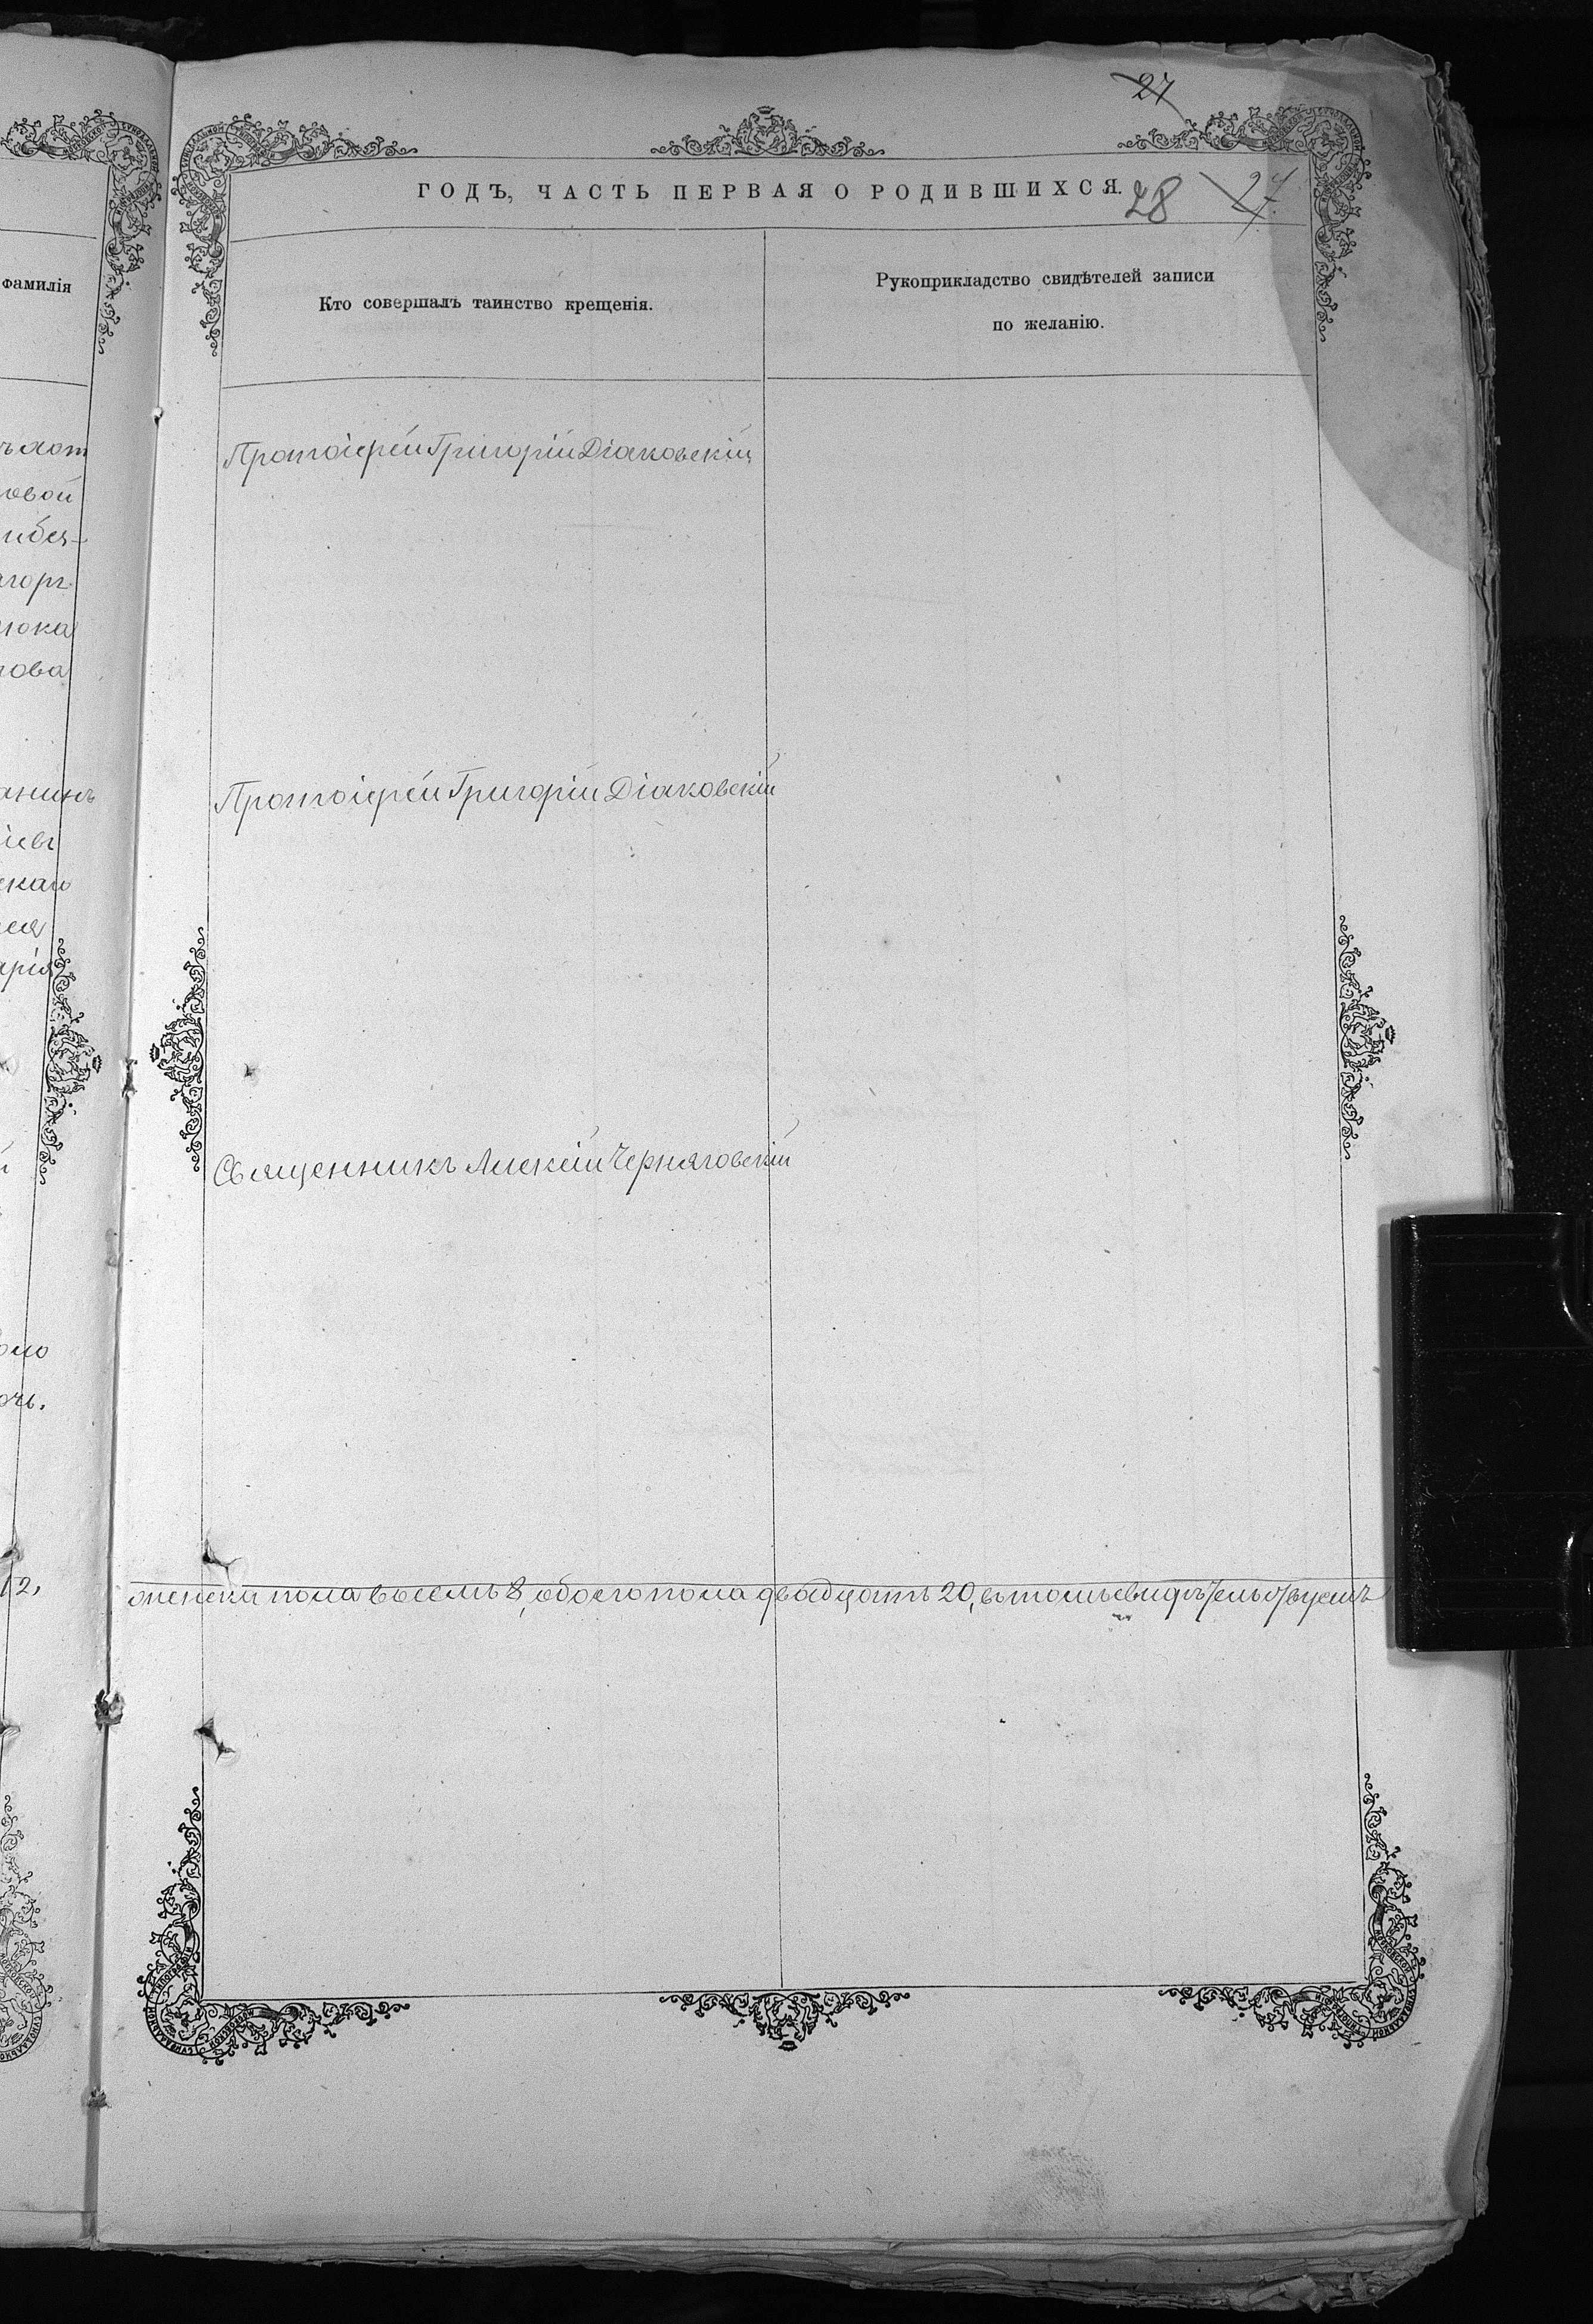 27
ГОДЪ, ЧАСТЬ ПЕРВАЯ О РОДИВШИХСЯ.
28
27
фамилія
Кто совершалъ таинство крещенія.
Рукоприкладство свидѣтелей записи
по желанію.
Протоіерей Григорій Діаковскій
овой
нова
Протоіерей Григорій Діаковскій
анинъ
арія
Священникъ Алексій Черняговскій
12,
женска пола восемь 8, обоего пола двадцать 20, въ томъ свидѣтельствуемъ